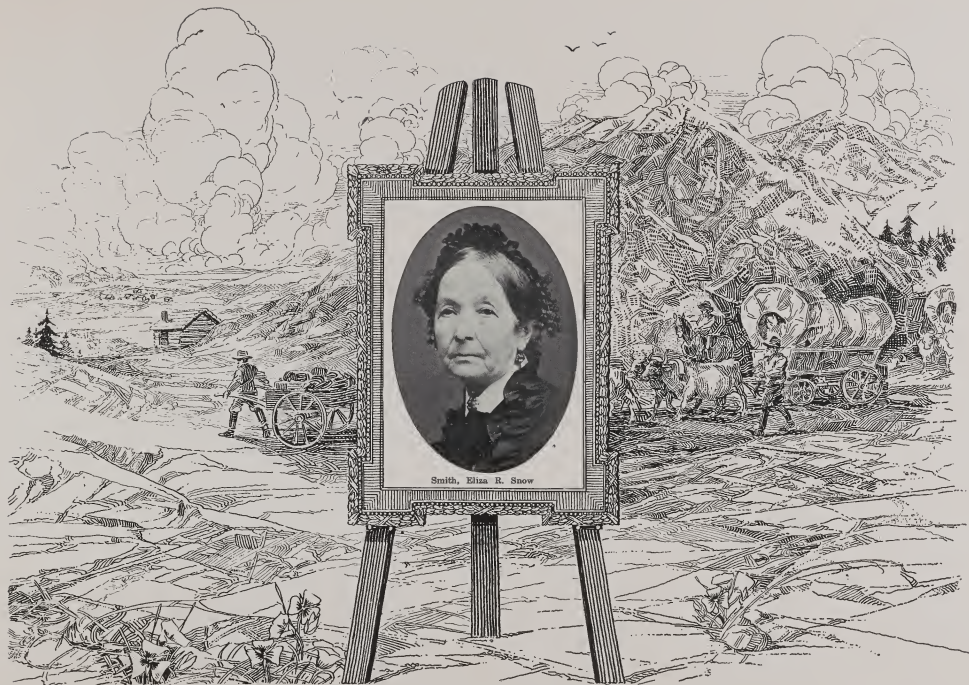 Smith, Eliza R. Snow